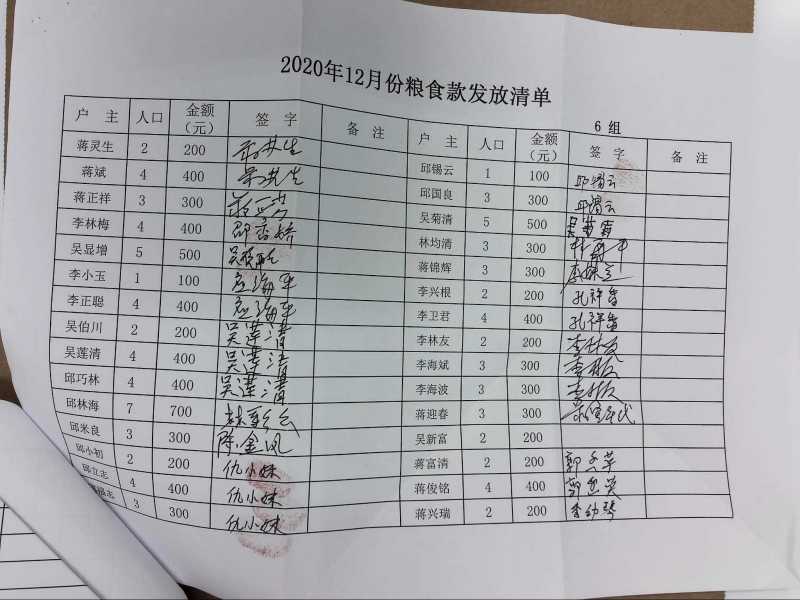 2020年12月份粮食款发放清单
6 组
户 主 人口 金额(元) 签 字 备 注 户 主 人口 金额(元) 签 字 备 注
蒋灵生 2 200 邱锡云 1 100 邱锡云
蒋斌 4 400 邱国良 3 300 邱锡云
蒋正祥 3 300 吴菊清 5 500
李林梅 4 400 林均清 3 300
吴显增 5 500 蒋锦辉 3 300
李小玉 1 100 李兴根 2 200 孔祥香
李正聪 4 400 李卫君 4 400 孔祥香
吴伯川 2 200 吴莲清 李林友 2 200 李林友
吴莲清 4 400 吴莲清 李海斌 3 300
邱巧林 4 400 吴莲清 李海波 3 300
邱林海 7 700 蒋迎春 3 300
邱米良 3 300 陈金凤 吴新富 2 200
邱小初 2 200 仇小妹 蒋富清 2 200
邱立志 4 400 仇小妹 蒋俊铭 4 400
福志 3 300 仇小妹 蒋兴瑞 2 200 李幼琴